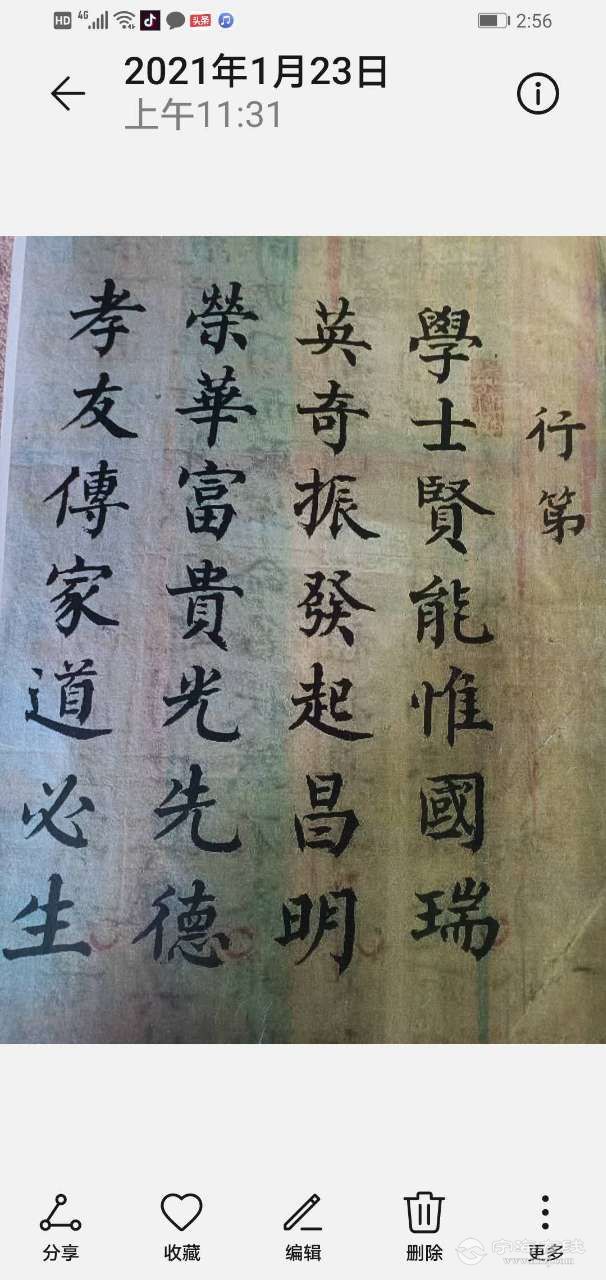 HD 4G 头条 2:56
2021年1月23日
上午11:31
行第
學士賢能惟國瑞
英奇振發起昌明
榮華富貴光先德
孝友傳家道必生
分享 收藏 编辑 删除 更多